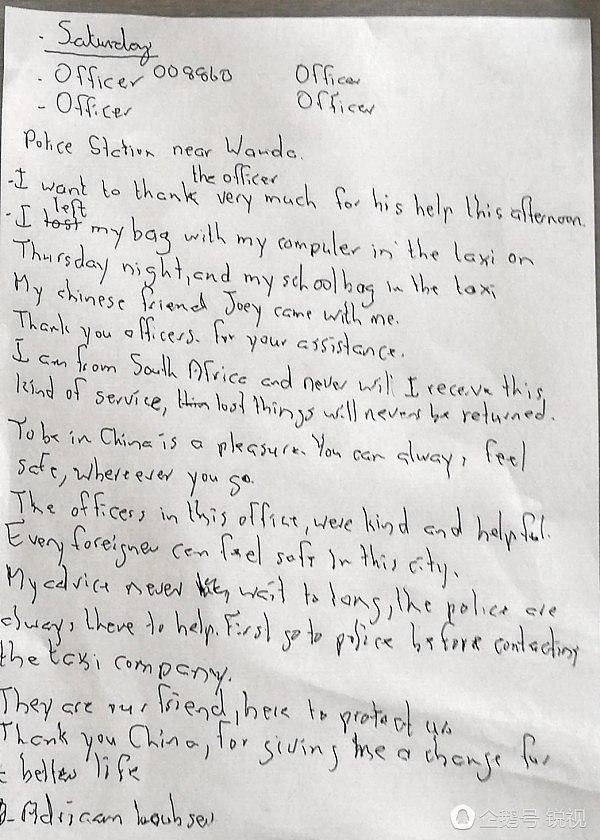 - Saturday
- Officer 008860 Officer
- Officer Officer
Police Station near Wanda.
the officer
- I want to thank very much for his help this afternoon.
left
- I lost my bag with my computer in the taxi on
Thursday night, and my schoolbag in the taxi
My chinese friend Joey came with me.
Thank you officers. for your assistance.
I am from South Africa and never will I receive this
kind of service, lost things will never be returned.
To be in China is a pleasure. You can always feel
safe, where ever you go.
The officers in this office, were kind and helpful.
Every foreigner can feel safe in this city.
My advice never wait to long, the police are
always there to help. First go to police before contacting
the taxi company.
They are our friend, here to protect us
Thank you China, for giving me a change for
better life
Adriaan
企鹅号 锐视